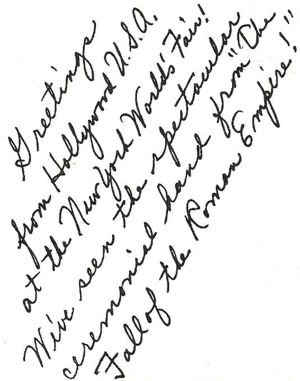 Greetings
from Hollywood U.S.A.
at the New York World's Fair!
We've seen the spectacular
ceremonial hand from "The
Fall of the Roman Empire!"